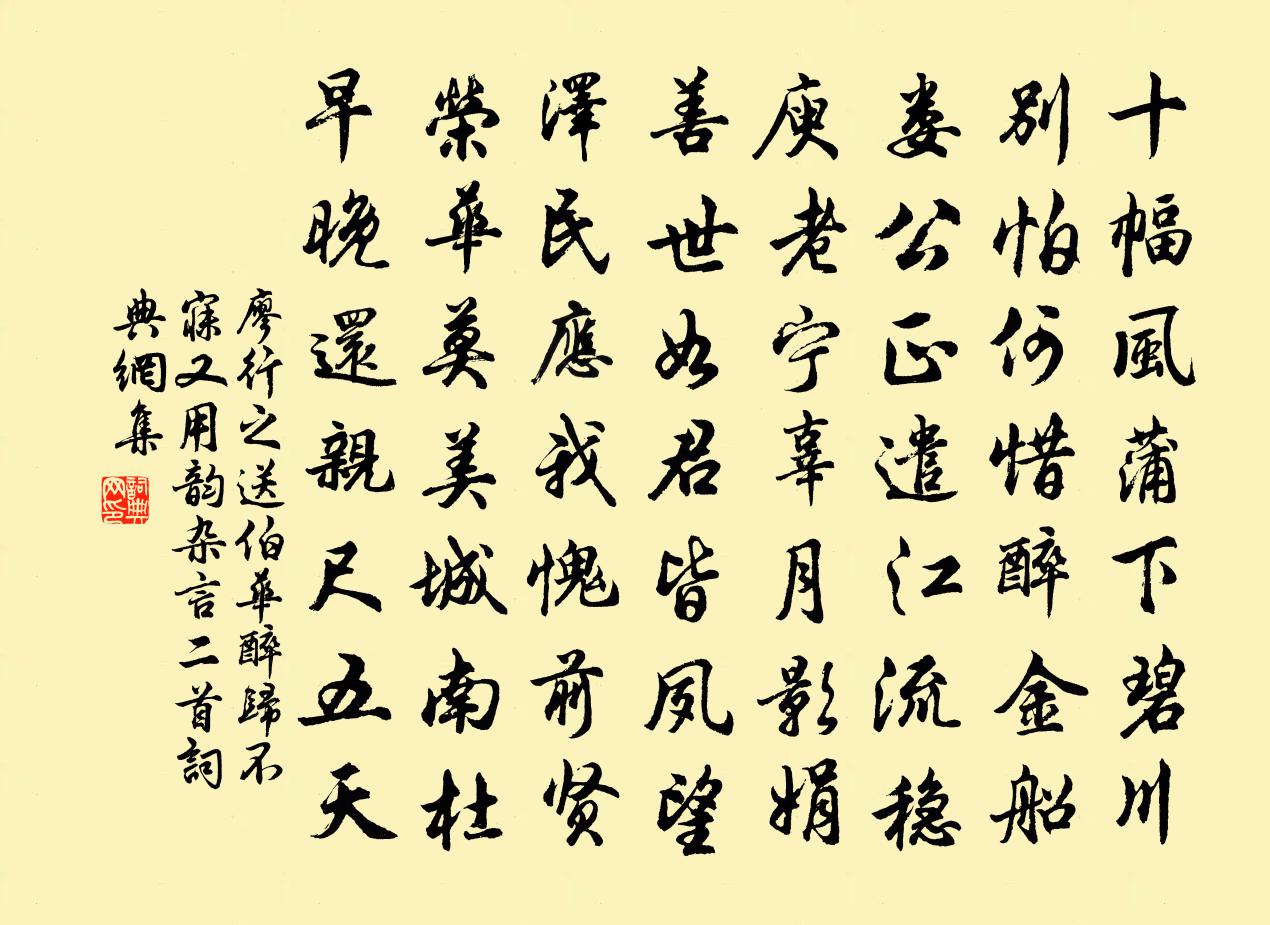 十幅風蒲下碧川
別怕何惜醉金船
娄公正遣江流穏
庾老宁辜月影娟
善世如君皆夙望
澤民應我愧前贤
榮華莫美城南杜
早晚還親尺五天
廖行之送伯華醉歸不
寐又用韵杂言二首詞
典網集
詞典网印